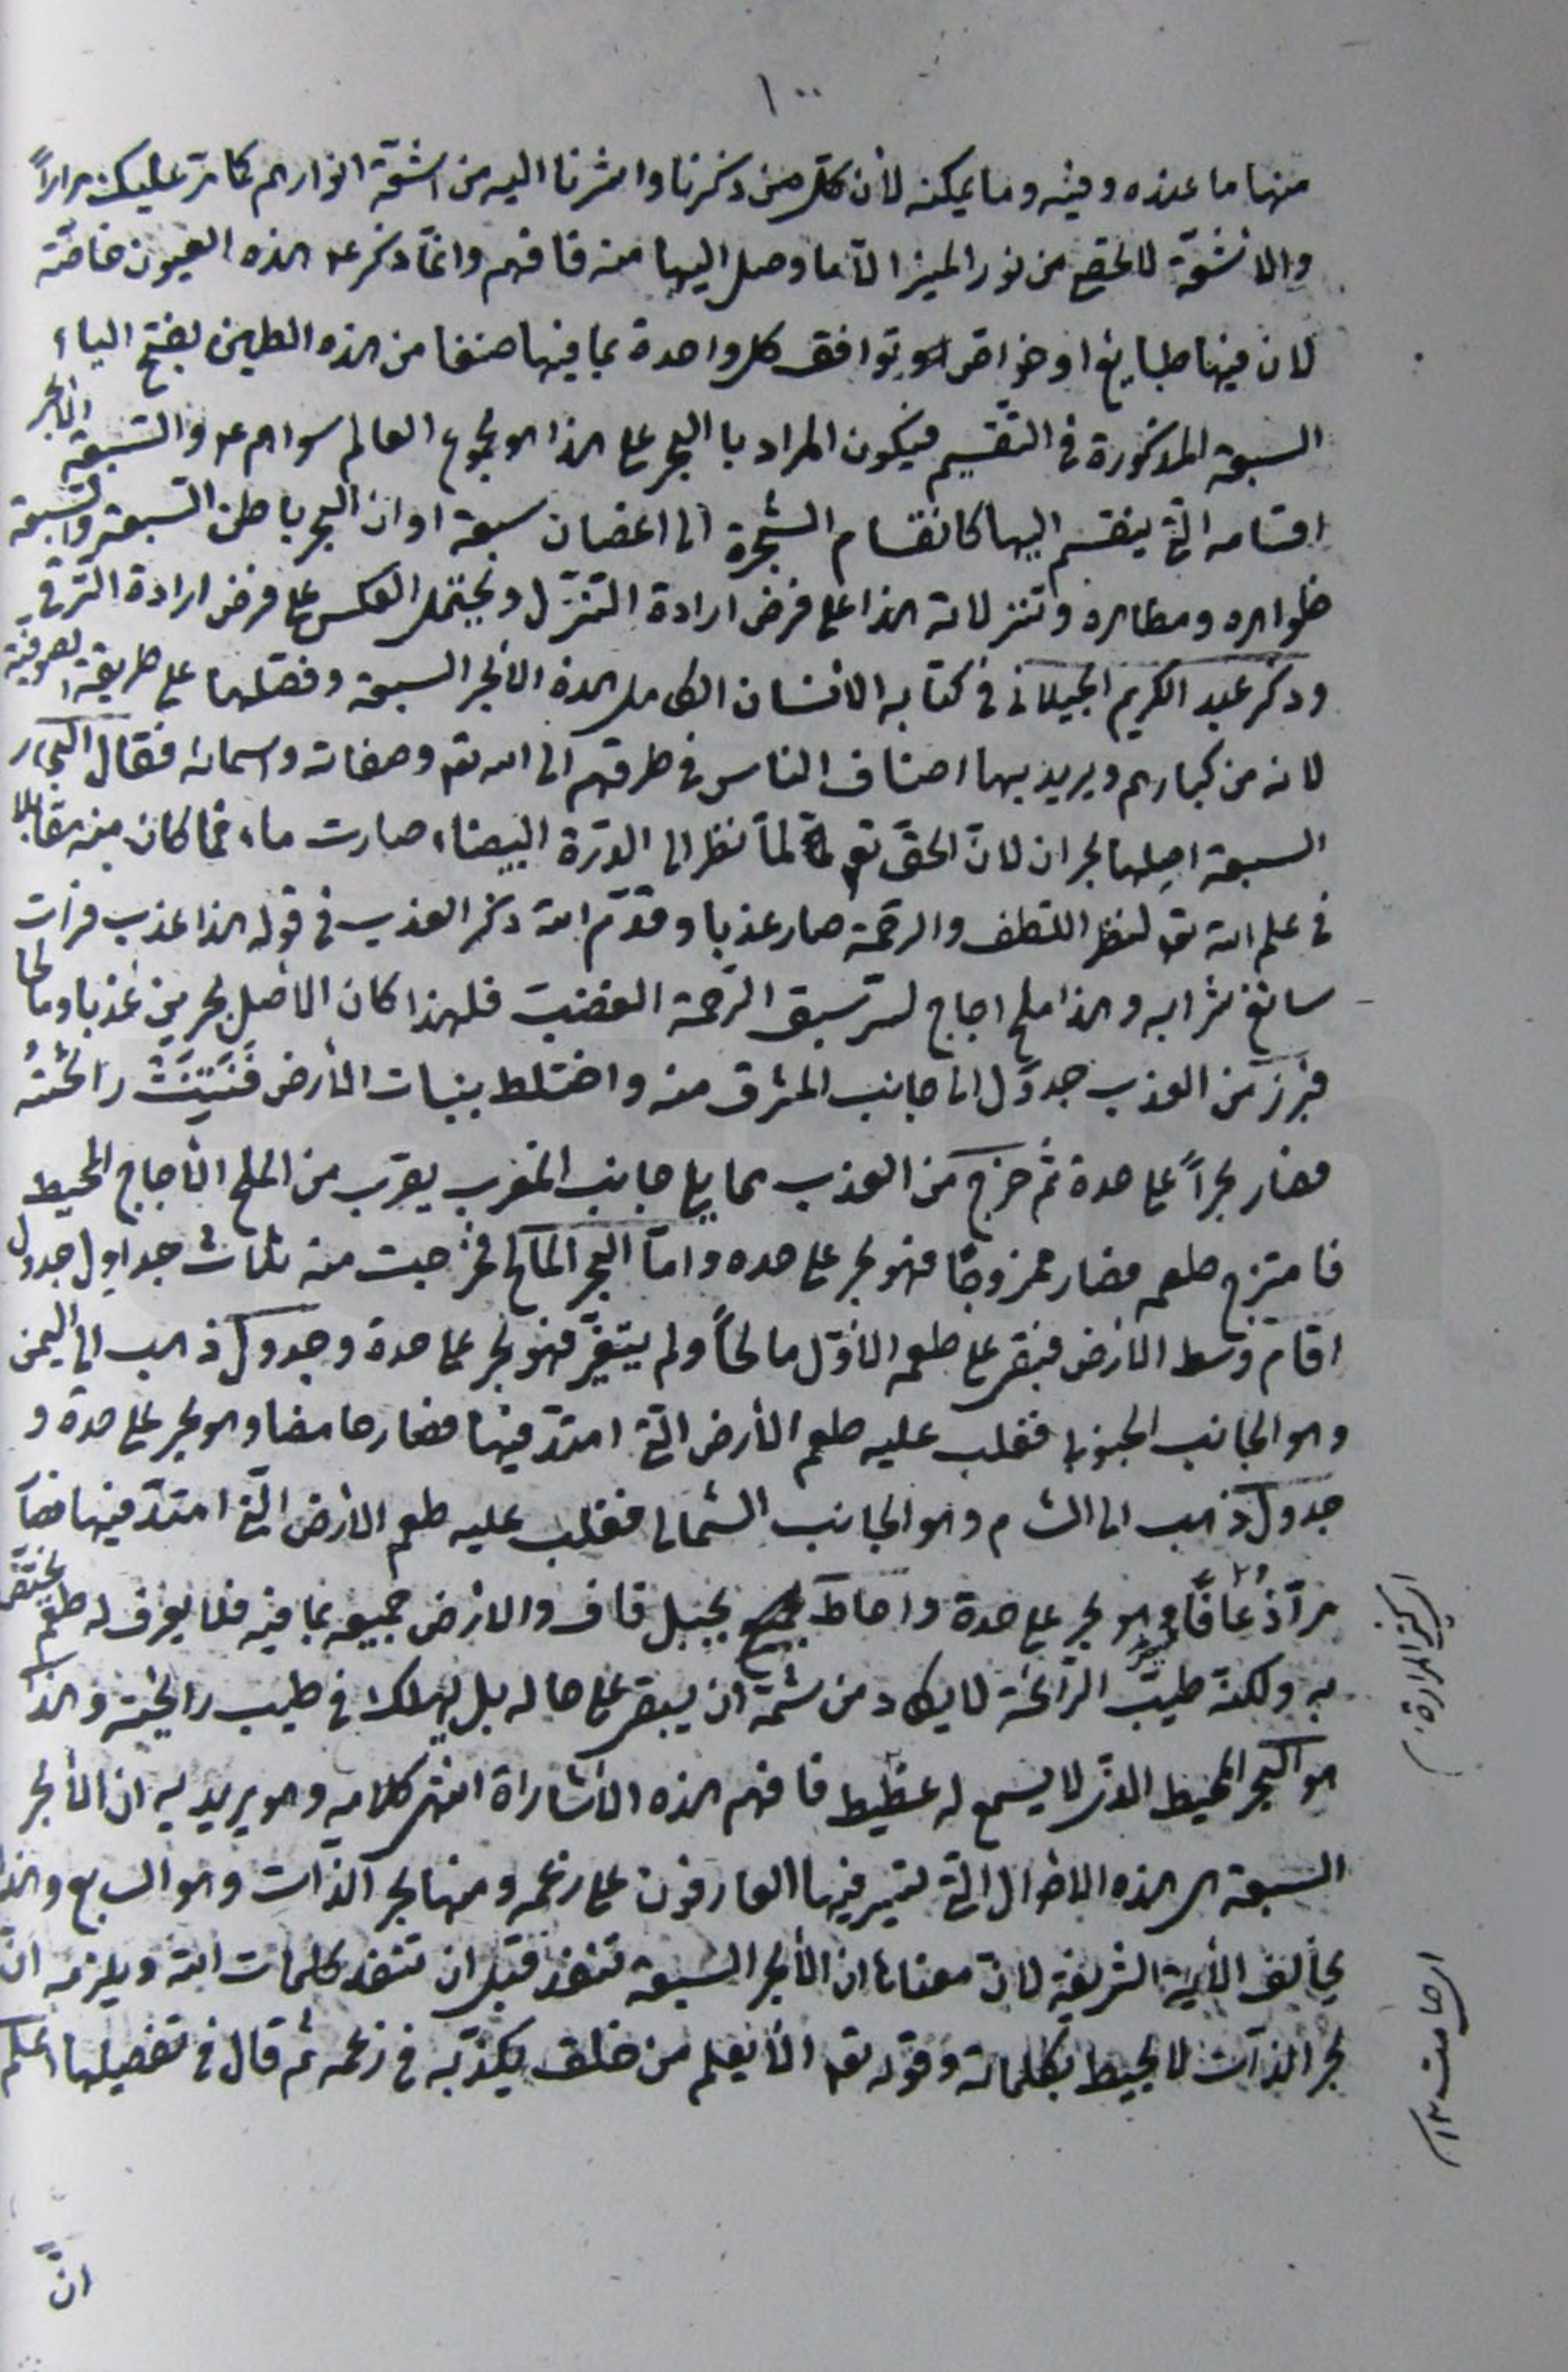 ١٠٠
منها ما عنده وفيه وما يمكنه لأن كل من ذكرنا واشرنا اليه من اشعّة انوارهم كما مرّ عليك مراراً
والاشعّة لا تحصى من نور المنير الّا ما وصل اليها منه فافهم وانّما ذكر ع هذه العيون خاصّة
لان فيها طبايع او خواص او توافق كل واحدة بما فيها صنفا من هذه الطبين بفتح الياء
السبعة المذكورة في التقسيم فيكون المراد با البحر على هذا هو مجموع العالم سواهم ع والسبعة الأبحر
اقسامه الّتي ينقسم اليها كانقسام الشجرة الى اغصان سبعة او ان البحر باطن السبعة والسبعة
ظواهره ومظاهره وتنزلاته هذا على فرض ارادة التنزّل ويحتمل العكس على فرض ارادة الترقي
وذكر عبد الكريم الجيلاني في كتابه الانسان الكامل هذه الأبحر السبعة وفصّلها على طريقة الصوفية
لانه من كبارهم ويريد بها اصناف الناس في طرقهم الى الله تعـ وصفاته واسمائه فقال البحار
السبعة اصلها بحران لانّ الحقّ تعـ لمّا نظر الى الدّرة البيضاء صارت ماء فما كان منه مقابلا
في علم الله تعـ لنظر اللّطف والرحمة صار عذبا وقدّم الله ذكر العذب في قوله هذا عذب فرات
سائغ شرابه وهذا ملح اجاج لسرّ سبق الرّحمة الغضب فلهذا كان الأصل بحرين عذبا ومالحا
فبرز من العذب جدول الى جانب المشرق منه واختلط بنبات الأرض فَنَتِنَتْ رائحتُهُ
فصار بحراً على حدة ثم خرج من العذب مما يلي جانب المغرب يقرب من الملح الأجاج المحيط
فامتزج طعمه فصار ممزوجًا فهو بحر على حده وامّا البحر المالح فخرجت منه ثلاث جداول جدول
اقام وسط الارض فبقى على طعمه الأوّل مالحاً ولم يتغيّر فهو بحر على حدة وجدول ذهب الى اليمن
وهو الجانب الجنوبي فغلب عليه طعم الأرض الّتي امتدّ فيها فصار حامضا وهو بحر على حدة و
جدول ذهب الى الشام وهو الجانب الشمالى فغلب عليه طعم الأرض الّتي امتدّ فيها فصا
مرّاً ذُعَافًا وهو بحر على حدة واحاط بجبل قاف والارض جميعه بما فيه فلا يعرف له طعم يختصّ
به ولكنه طيّب الرّائحة لا يكاد من شمّه ان يبقى على حاله بل يهلك في طيب رائحته وهذا
هو البحر المحيط الذى لا يسمع له غطيط فافهم هذه الأشاراة انتهى كلامه وهو يريد به ان الأبحر
السبعة هى هذه الاحوال الّتي تسير فيها العارفون على زعمه ومنها بحر الذات وهو السابع وهذا
يخالف الأية الشريفة لانّ معناها ان الأبحر السبعة تنفد قبل ان تنفد كلمات الله ويلزمه انّ
بحر الذّات لا يحيط بكلماته وقوله تعـ الّا يعلم من خلق يكذّبه في زعمه ثم قال في تفصيلها اعلم
انّ